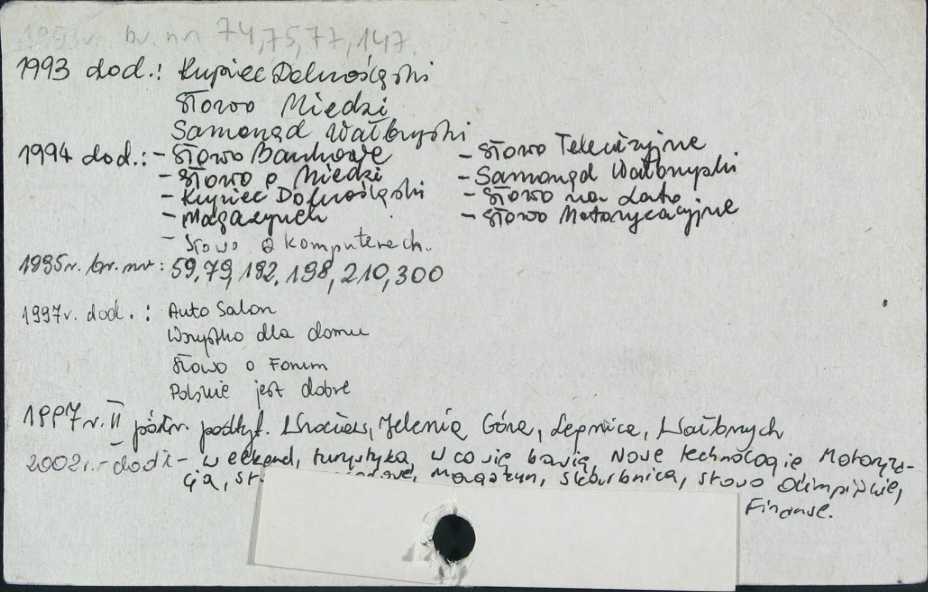 1993 r. br. nr 74, 75, 77, 147.
1993 dod.: Kupiec Dolnośląski
Słowo Miedzi
Samorząd Wałbrzyski
1994 dod.: - Słowo Bankowe
- Słowo o Miedzi
- Kupiec Dolnośląski
- Magazynek
- Słowo o komputerach.
- Słowo Telewizyjne
- Samorząd Wałbrzyski
- Słowo na Lato
- Słowo Motoryzacyjne
1995 r. br. nr: 59, 79, 192, 198, 210, 300
1997 r. dod.: Auto Salon
Wszystko dla domu
Słowo o Forum
Polskie jest dobre
1997 r. II półr. podtyt. Wrocław, Jelenia Góra, Legnica, Wałbrzych
2002 r. - dod: - Weekend, turystyka, W co się bawią, Nowe technologie Motoryza-
cja, Magazyn, Skarbnica, Słowo Olimpijskie,
Finanse.